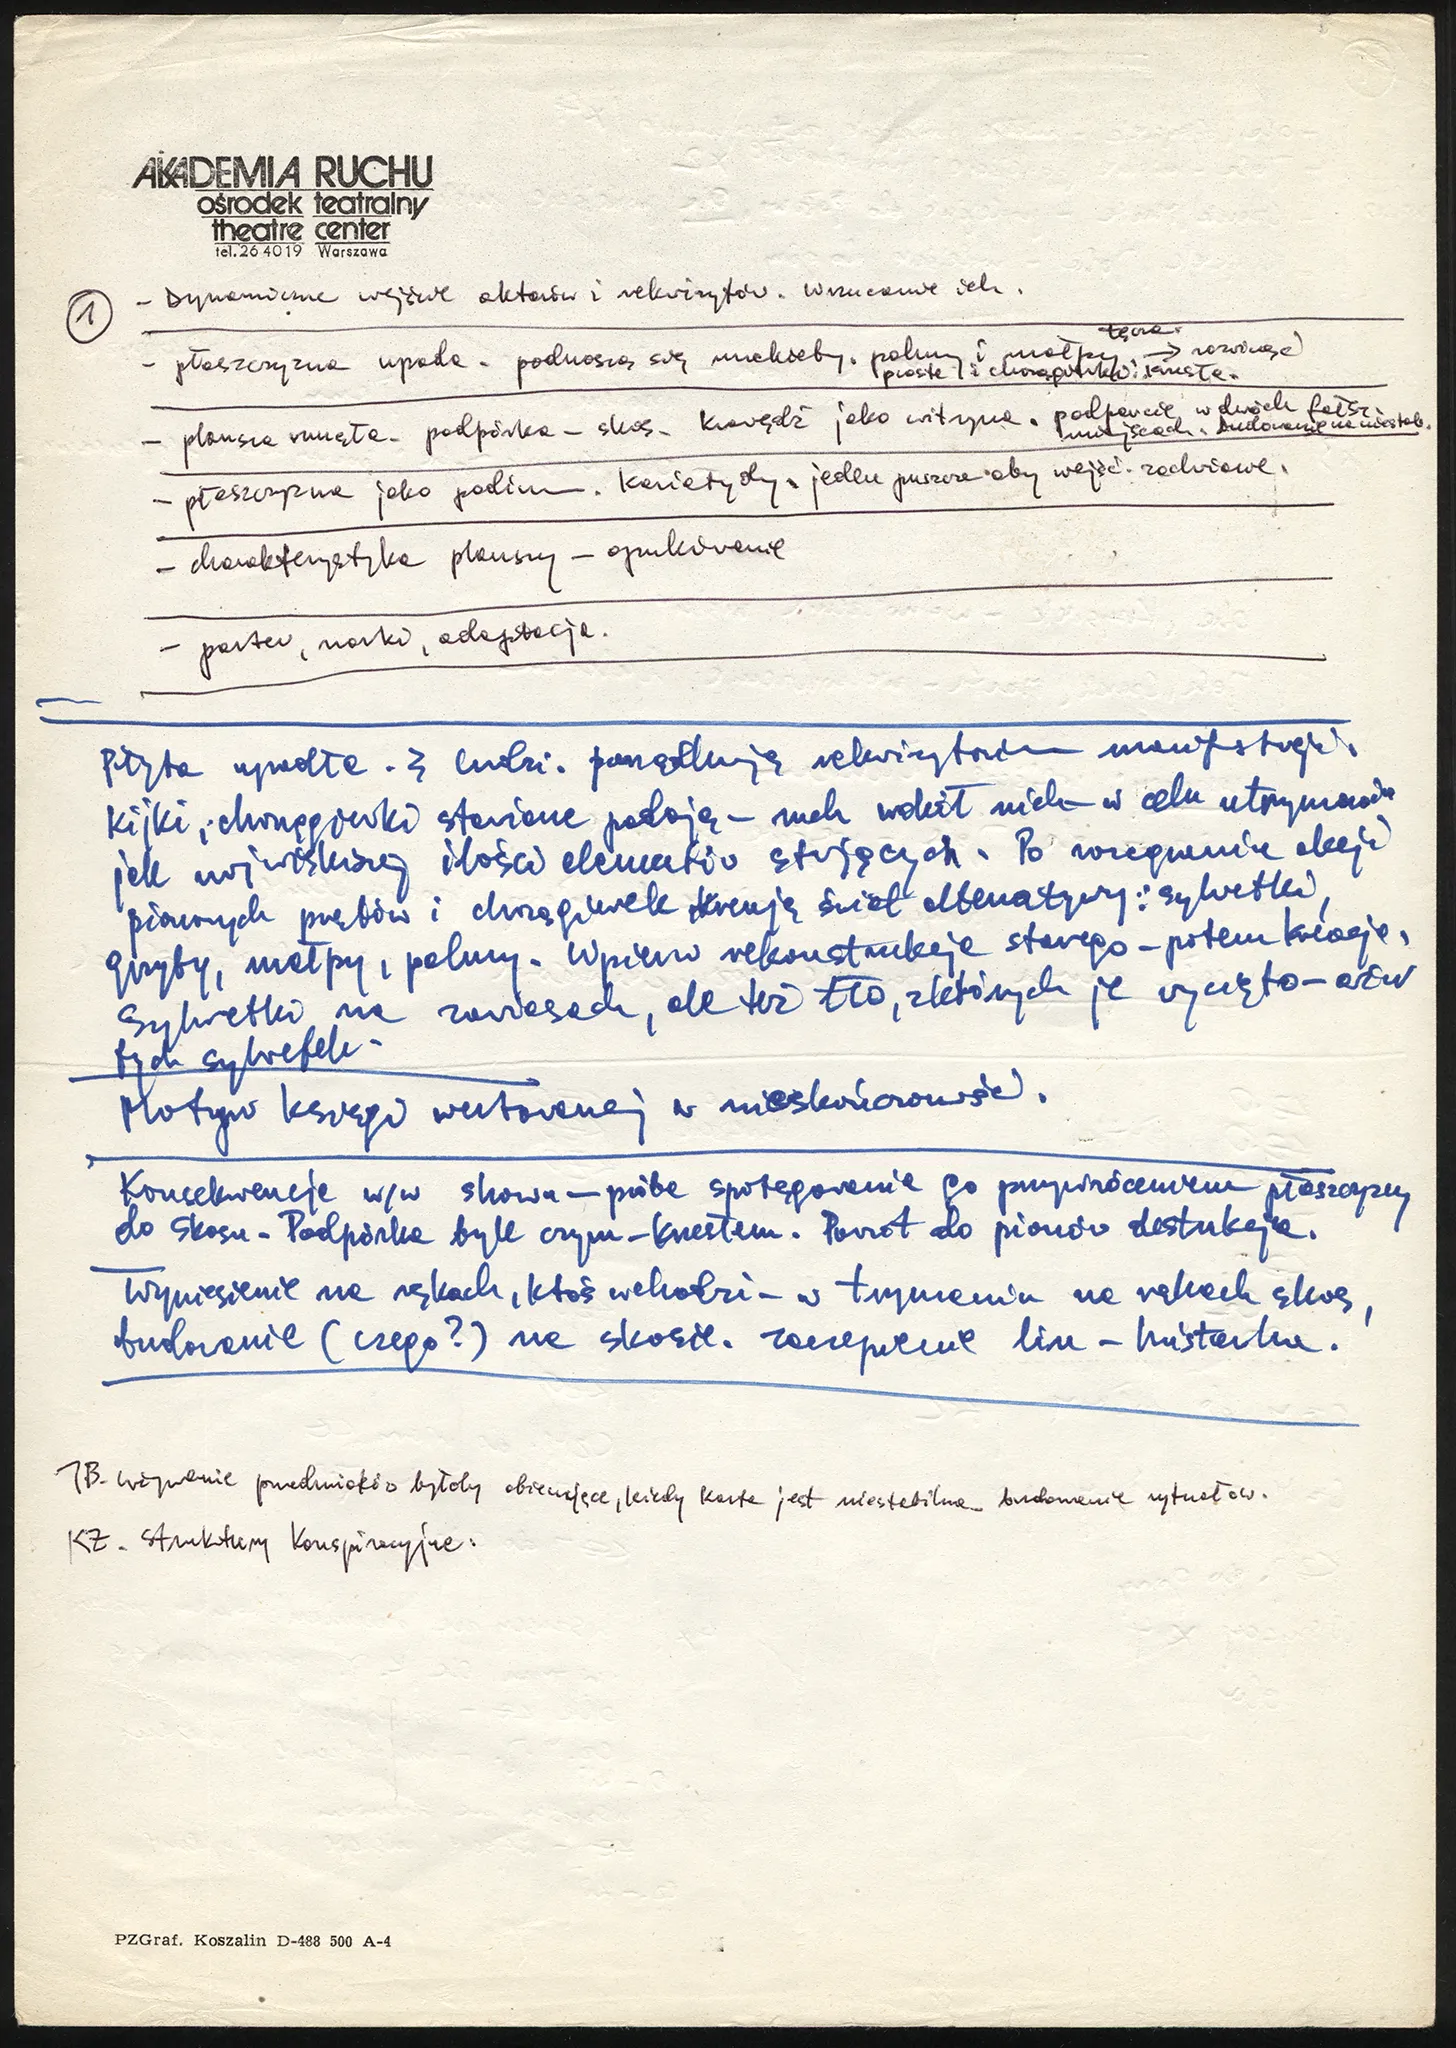 AKADEMIA RUCHU
ośrodek teatralny
theatre center
tel. 26 40 19 Warszawa
1 - Dynamiczne wejście aktorów i rekwizytów. Wrzucanie ich.
tęcza.
- płaszczyzna upada. podnoszą się makiety. palmy i małpy → rozwinąć
proste i chorągiewki:
- plansza runęła - podpórka - skos. krawędź jako witryna. podparcie w dwóch
miejscach.
- płaszczyzna jako podium. Kariatydy. jeden puszcza aby wejść.
- charakterystyka planszy - opukiwanie
- parter, narki, adaptacja.
Płyta upadła. 3 ludzi. porządkują rekwizytorium manifestacji.
Kijki, chorągiewki stawiane padają - ruch wokół nich - w celu utrzymania
jak największej ilości elementów stojących. Po rozegraniu akcji
pionowych prętów i chorągiewek kreują świat alternatywy: sylwetki,
grzyby, małpy, palmy. Wpierw rekonstrukcja starego - potem kreacja.
Sylwetki na zawiasach, ale też tło, z których je wycięto - ażur
tych sylwetek.
Motyw księgi wertowanej w nieskończoność.
Konsekwencje w/w słowa - próba spotęgowania go przywróceniem płaszczyzny
do skosu. Podpórka byle czym - krzesłem. Powrót do pionów destrukcja.
Wyniesienie na rękach, ktoś wchodzi - w trzymaniu na rękach skos,
budowanie (czego?) na skosie. zaczepienie lin - huśtawka.
JB. używanie przedmiotów byłoby obiecujące, kiedy karta jest niestabilna. budowanie rytuałów.
KZ. struktury konspiracyjne.
PZGraf. Koszalin D-488 500 A-4